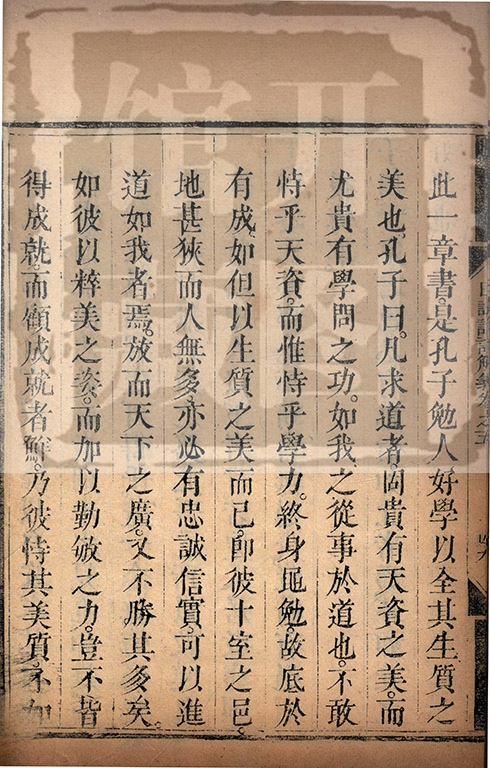 此一章書。是孔子勉人好學以全其生質之
美也。孔子曰。凡求道者。固貴有天資之美。而
尤貴有學問之功。如我之從事於道也。不敢
恃乎天資。而惟恃乎學力。終身黽勉。故底於
有成。如但以生質之美而已。即彼十室之邑。
地甚狹而人無多。亦必有忠誠信實。可以進
道如我者焉。放而天下之廣。又不勝其多矣。
如彼以粹美之姿。而加以勤敏之力。豈不皆
得成就。而顧成就者鮮。乃彼恃其美質。不如